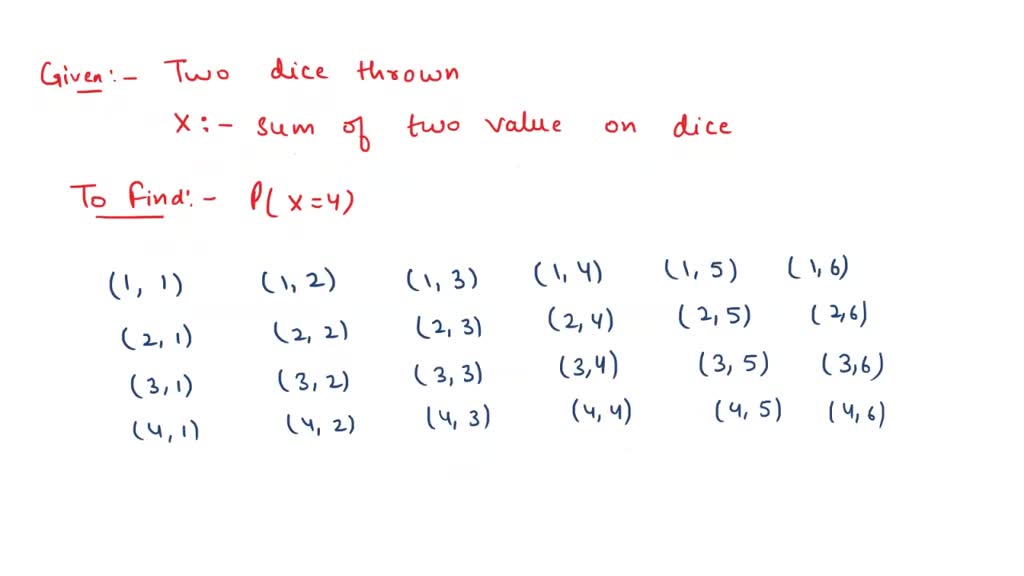 Given:- Two dice thrown
X:- sum of two value on dice
To find:- P(X=4)
(1, 1) (1, 2) (1, 3) (1, 4) (1, 5) (1, 6)
(2, 1) (2, 2) (2, 3) (2, 4) (2, 5) (2, 6)
(3, 1) (3, 2) (3, 3) (3, 4) (3, 5) (3, 6)
(4, 1) (4, 2) (4, 3) (4, 4) (4, 5) (4, 6)